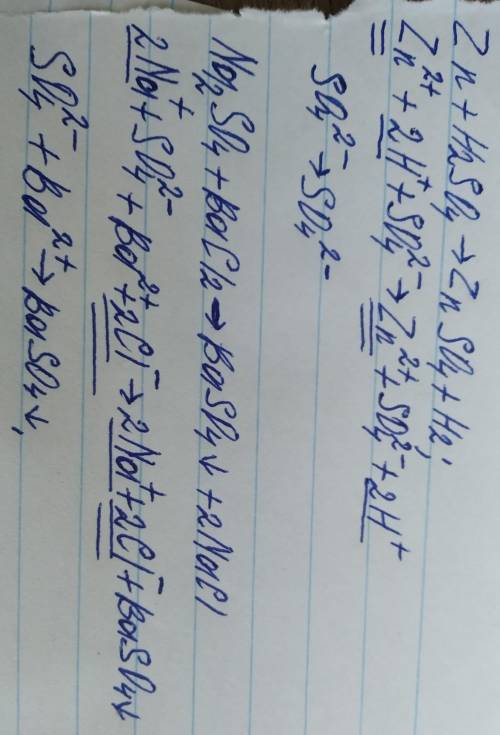 Zn + H₂SO₄ → ZnSO₄ + H₂↑
Zn²⁺ + 2H⁺ + SO₄²⁻ → Zn²⁺ + SO₄²⁻ + 2H⁺
SO₄²⁻ → SO₄²⁻
Na₂SO₄ + BaCl₂ → BaSO₄↓ + 2NaCl
2Na⁺ + SO₄²⁻ + Ba²⁺ + 2Cl⁻ → 2Na⁺ + 2Cl⁻ + BaSO₄↓
SO₄²⁻ + Ba²⁺ → BaSO₄↓